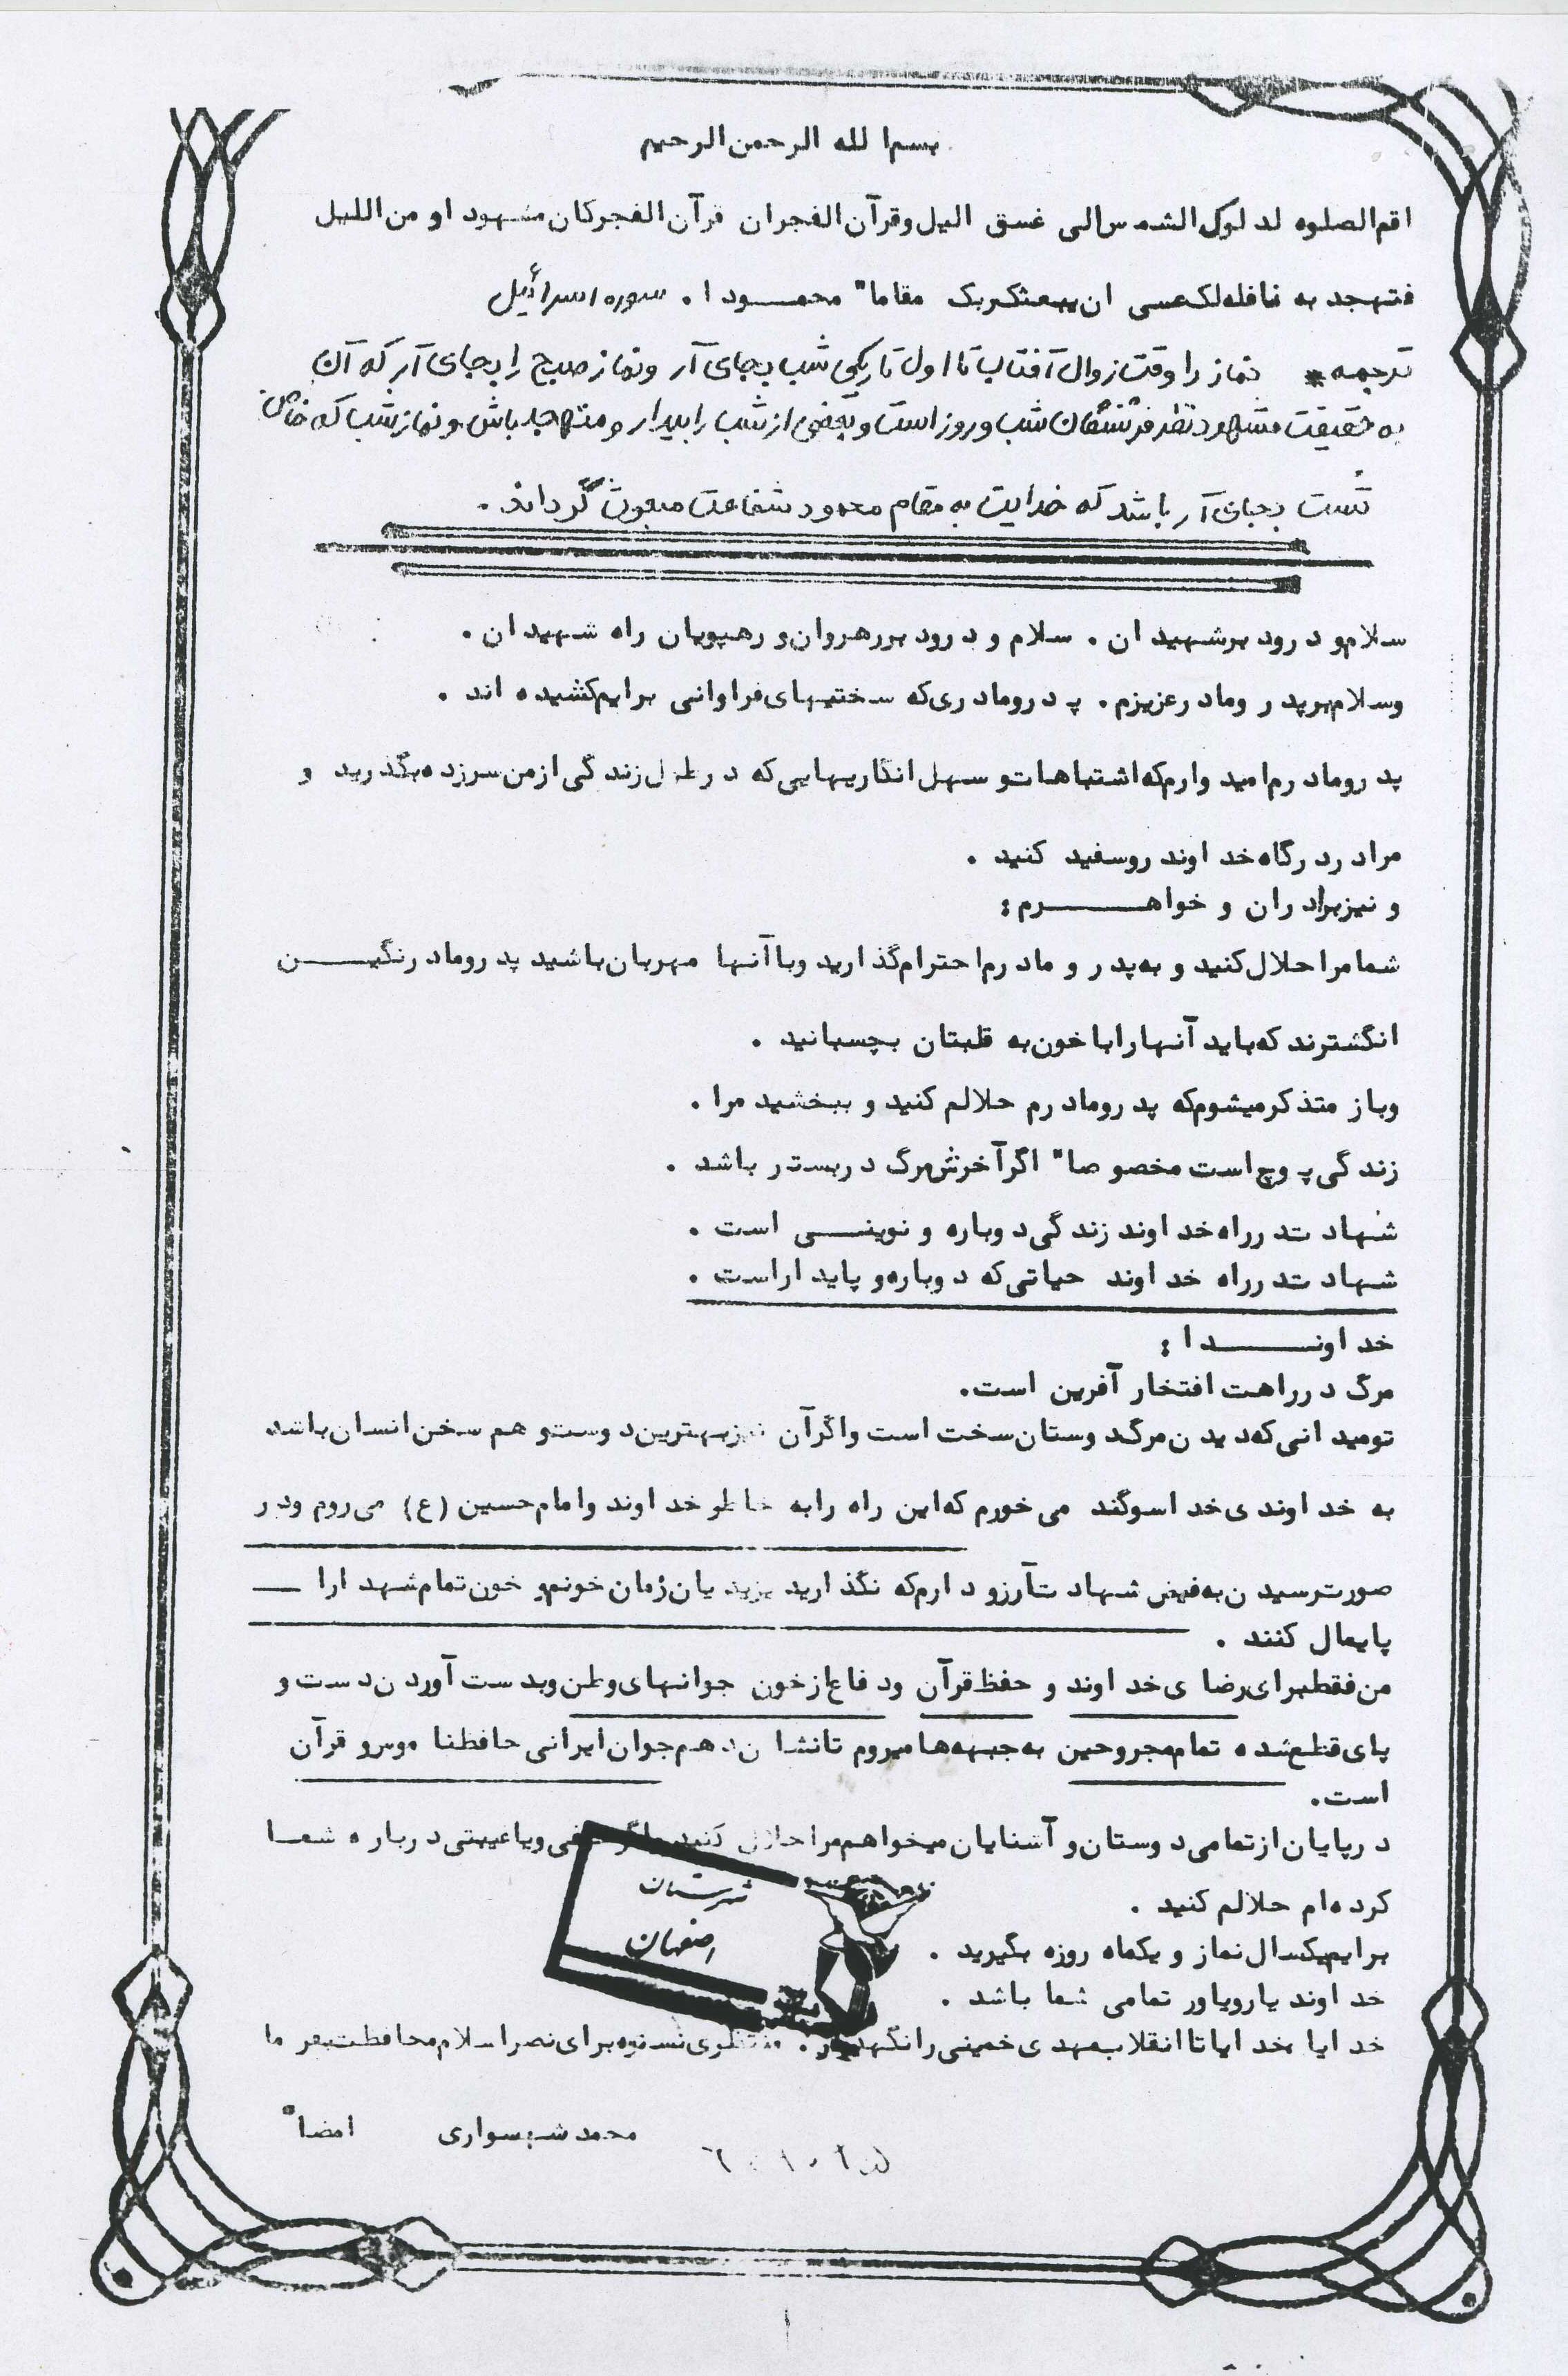 بسم الله الرحمن الرحیم
اقم الصلوه لدلوک الشمس الی غسق الیل و قرآن الفجر ان قرآن الفجر کان مشهودا و من اللیل
فتهجد به نافله لک عسی ان یبعثک ربک مقاما" محمـــود ا . سوره اسرائیل
ترجمه * نماز را وقت زوال آفتاب تا اول تاریکی شب بجای آر و نماز صبح را بجای آر که آن
به حقیقت مشهود نظر فرشتگان شب و روز است و بعضی از شب را بیدار و متهجد باش و نماز شب که خاص
تست بجای آر باشد که خدایت به مقام محمود شفاعت مبعوث گرداند .
سلام و درود بر شهیدان . سلام و درود بر رهروان و رهپویان راه شهیدان .
و سلام بر پدر و مادر عزیزم . پدر و مادری که سختیهای فراوانی برایم کشیده اند .
پدر و مادرم امیدوارم که اشتباهات و سهل انگاریهایی که در طول زندگی از من سرزده بگذرید و
مرا در درگاه خداوند روسفید کنید .
و نیز برادران و خواهـــــرم :
شما مرا حلال کنید و به پدر و مادرم احترام گذارید و با آنها مهربان باشید پدر و مادر نگیـــن
انگشترند که باید آنها را با خون به قلبتان بچسبانید .
و باز متذکر میشوم که پدر و مادرم حلالم کنید و ببخشید مرا .
زندگی پوچ است مخصوصا" اگر آخرش مرگ در بستر باشد .
شهادت در راه خداوند زندگی دوباره و نوینـــی است .
شهادت در راه خداوند حیاتی که دوباره و پایدار است .
خداونـــــدا :
مرگ در راهت افتخار آفرین است.
تو میدانی که دیدن مرگ دوستان سخت است و اگر آن نیز بهترین دوست و هم سخن انسان باشد
به خداوندی خدا سوگند می خورم که این راه را به خاطر خداوند و امام حسین (ع) می روم و در
صورت رسیدن به فیض شهادت آرزو دارم که نگذارید یزیدیان زمان خونم و خون تمام شهدا را
پایمال کنند .
من فقط برای رضای خداوند و حفظ قرآن و دفاع از خون جوانهای وطن و بدست آوردن دست و
پای قطع شده تمام مجروحین به جبهه ها میروم تا نشان دهم جوان ایرانی حافظ ناموس و قرآن
است.
در پایان از تمامی دوستان و آشنایان میخواهم مرا حلال کنید و اگر و یا غیبتی درباره شمـا
کرده ام حلالم کنید .
برایم یکسال نماز و یکماه روزه بگیرید .
خداوند یار و یاور تمامی شما باشد .
شهرستان
اصفهان
خدایا خدایا تا انقلاب مهدی خمینی را نگهدار . برای نصر اسلام محافظت بفرما
محمد شهسواری امضاء